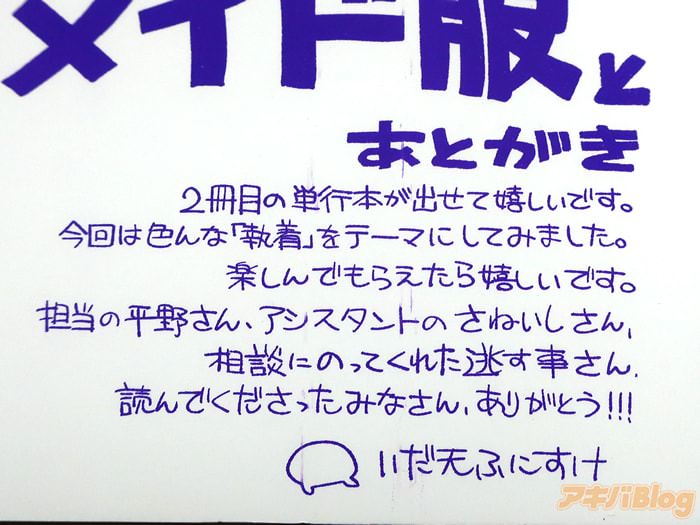 メイド服と
あとがき
2冊目の単行本が出せて嬉しいです。
今回は色んな「執着」をテーマにしてみました。
楽しんでもらえたら嬉しいです。
担当の平野さん、アシスタントのさねいしさん、
相談にのってくれた逃す事さん、
読んでくださったみなさん、ありがとう!!!
いだ天ふにすけ
アキバBlog